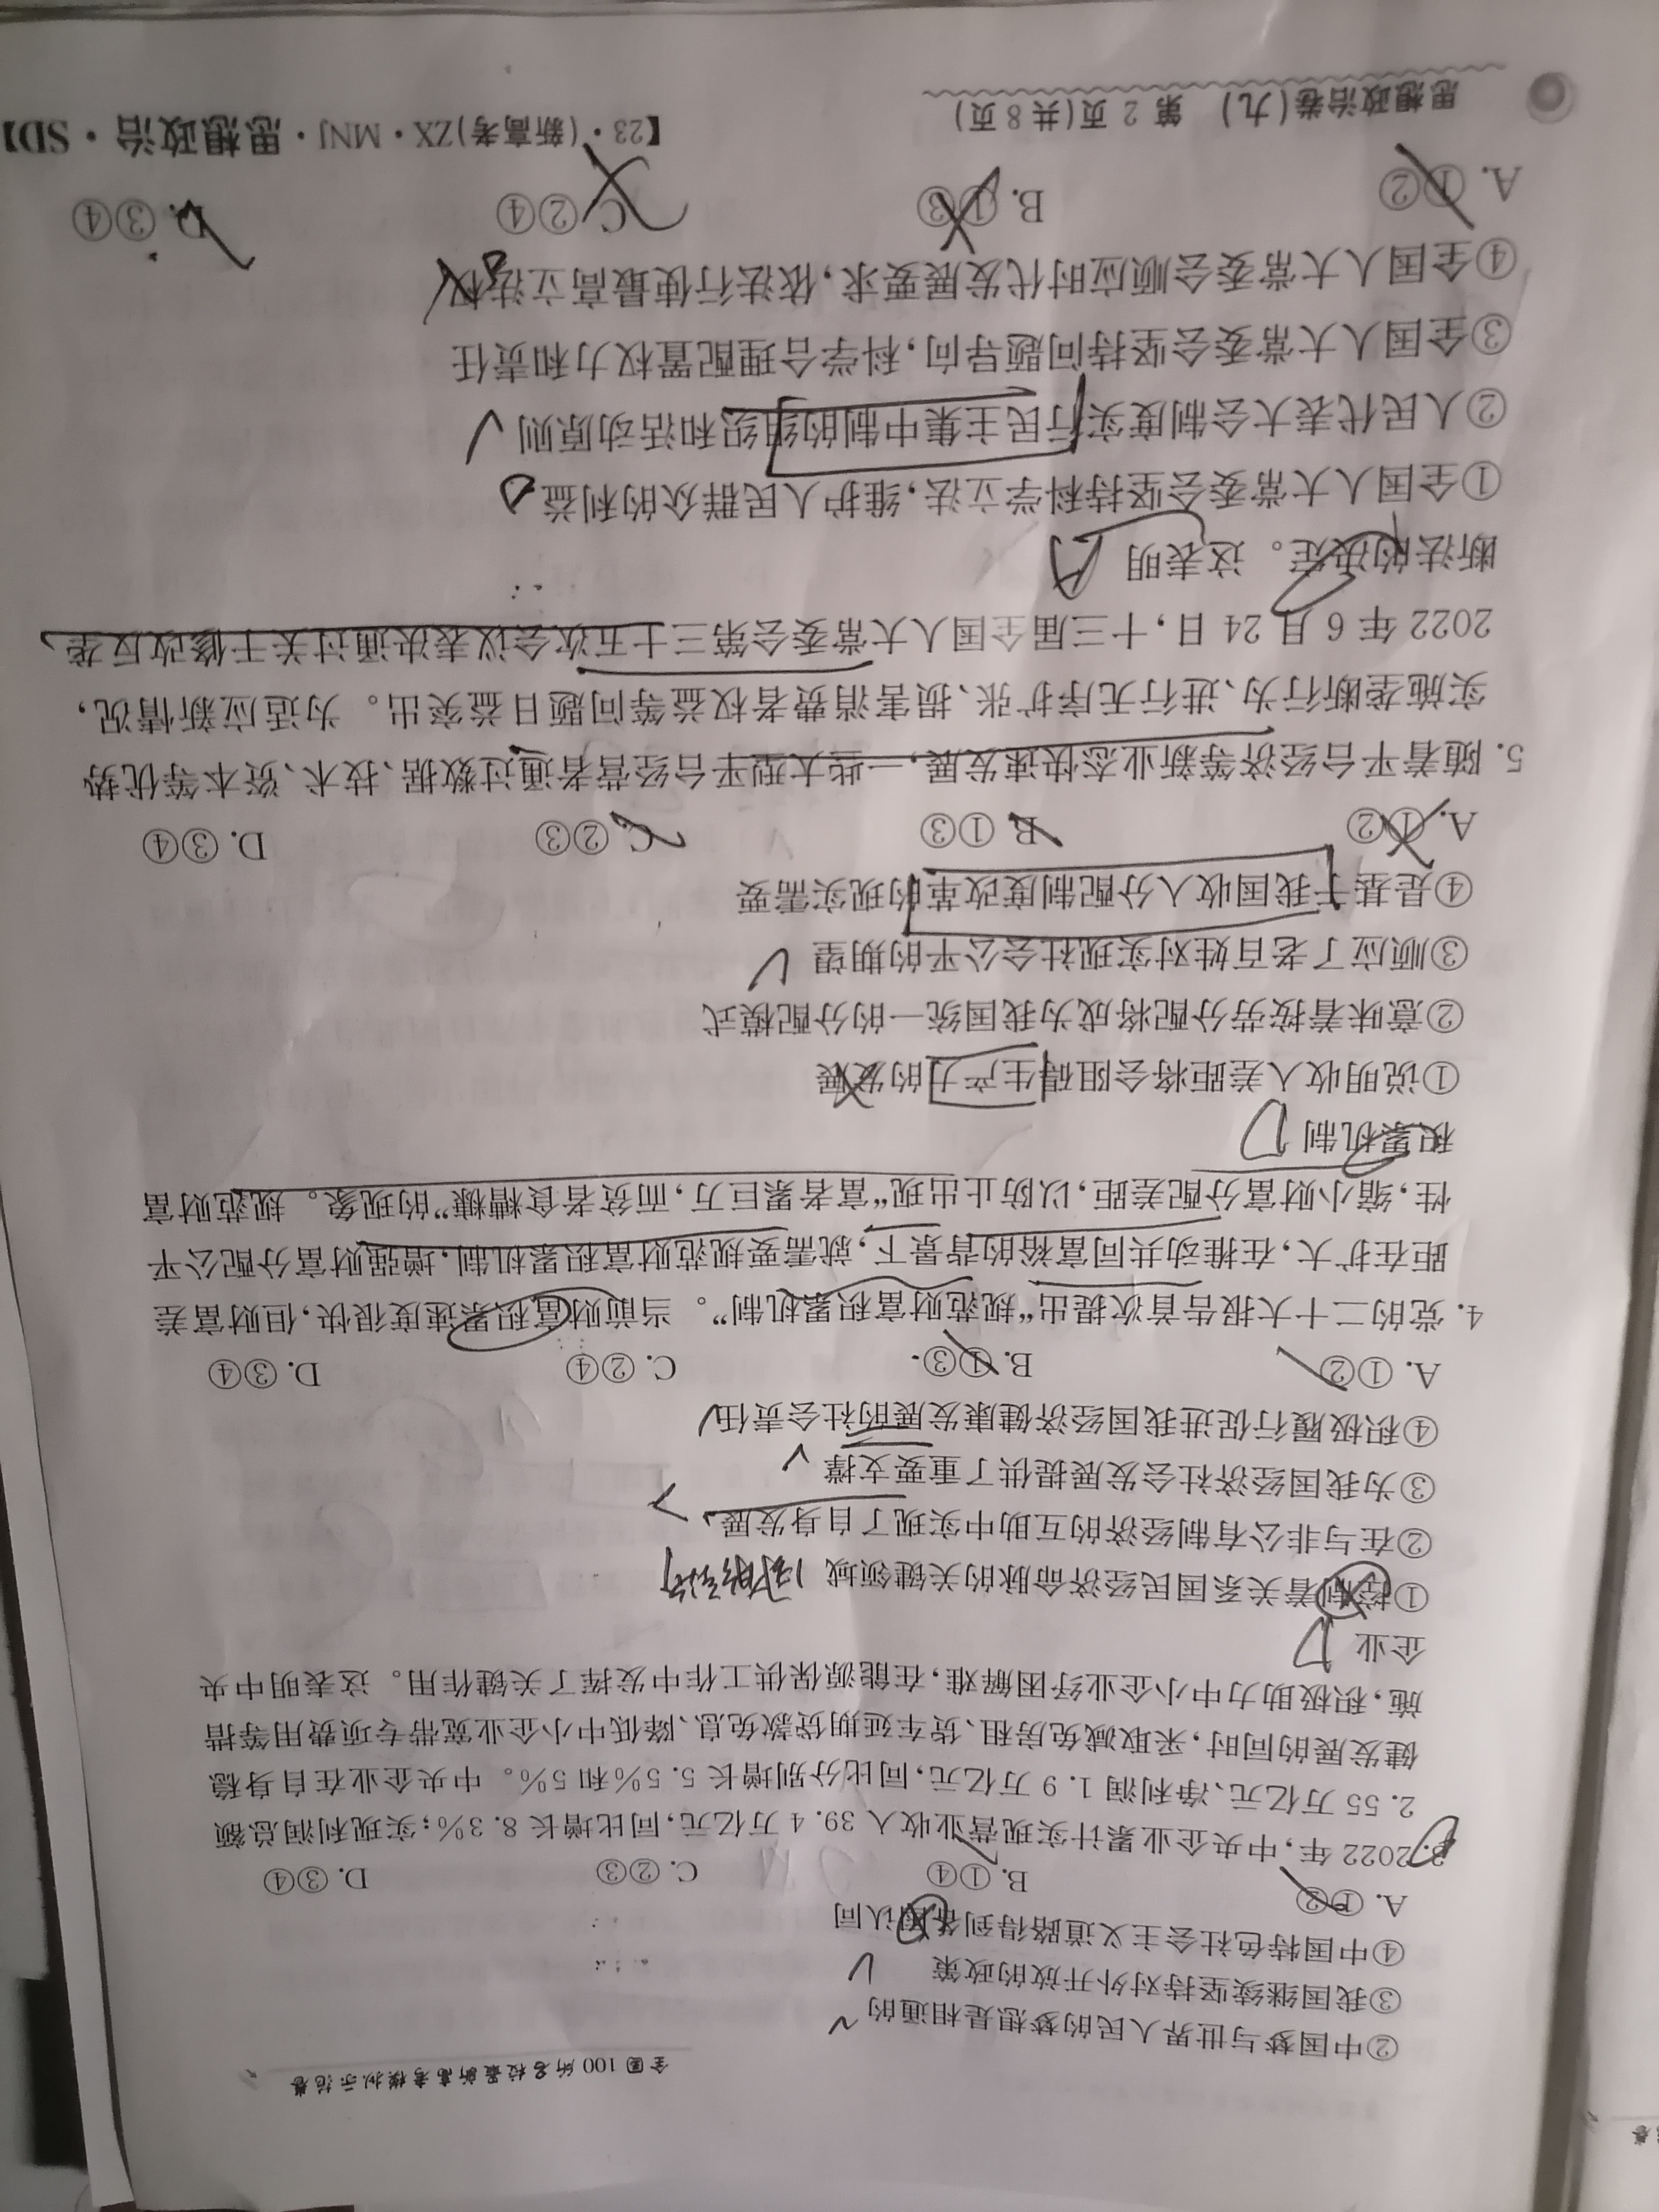 全国100所名校最新高考模拟示范卷
②中国梦与世界人民的梦想是相通的
③我国继续坚持对外开放的政策
④中国特色社会主义道路得到各国认同
A. ①② B. ①④ C. ②③ D. ③④
3. 2022年,中央企业累计实现营业收入39.4万亿元,同比增长8.3%;实现利润总额
2.55万亿元、净利润1.9万亿元,同比分别增长5.5%和5%。中央企业在自身稳
健发展的同时,采取减免房租、货车延期贷款免息、降低中小企业宽带专项费用等措
施,积极助力中小企业纾困解难,在能源保供工作中发挥了关键作用。这表明中央
企业 D
①控制着关系国民经济命脉的关键领域
②在与非公有制经济的互助中实现了自身发展
③为我国经济社会发展提供了重要支撑
④积极履行促进我国经济健康发展的社会责任
A. ①② B. ①③ C. ②④ D. ③④
4. 党的二十大报告首次提出“规范财富积累机制”。当前财富积累速度很快,但财富差
距在扩大,在推动共同富裕的背景下,就需要规范财富积累机制,增强财富分配公平
性,缩小财富分配差距,以防止出现“富者累巨万,而贫者食糟糠”的现象。规范财富
积累机制 D
①说明收入差距将会阻碍生产力的发展
②意味着按劳分配将成为我国统一的分配模式
③顺应了老百姓对实现社会公平的期望
④是基于我国收入分配制度改革的现实需要
A. ①② B. ①③ C. ②③ D. ③④
5. 随着平台经济等新业态快速发展,一些大型平台经营者通过数据、技术、资本等优势
实施垄断行为、进行无序扩张、损害消费者权益等问题日益突出。为适应新情况,
2022年6月24日,十三届全国人大常委会第三十五次会议表决通过关于修改反垄
断法的决定。这表明 A
①全国人大常委会坚持科学立法,维护人民群众的利益
②人民代表大会制度实行民主集中制的组织和活动原则
③全国人大常委会坚持问题导向,科学合理配置权力和责任
④全国人大常委会顺应时代发展要求,依法行使最高立法权
A. ①② B. ①③ C. ②④ D. ③④
思想政治卷(九) 第2页(共8页)
【23·(新高考)ZX·MNJ·思想政治·SD】